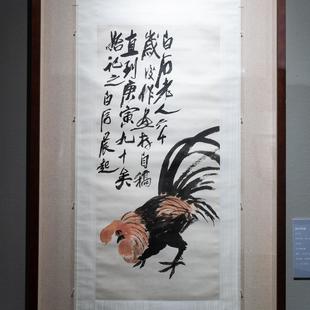 白石老人六十
歲後作画存自稿
直到庚寅九十矣
始记之白石晨起